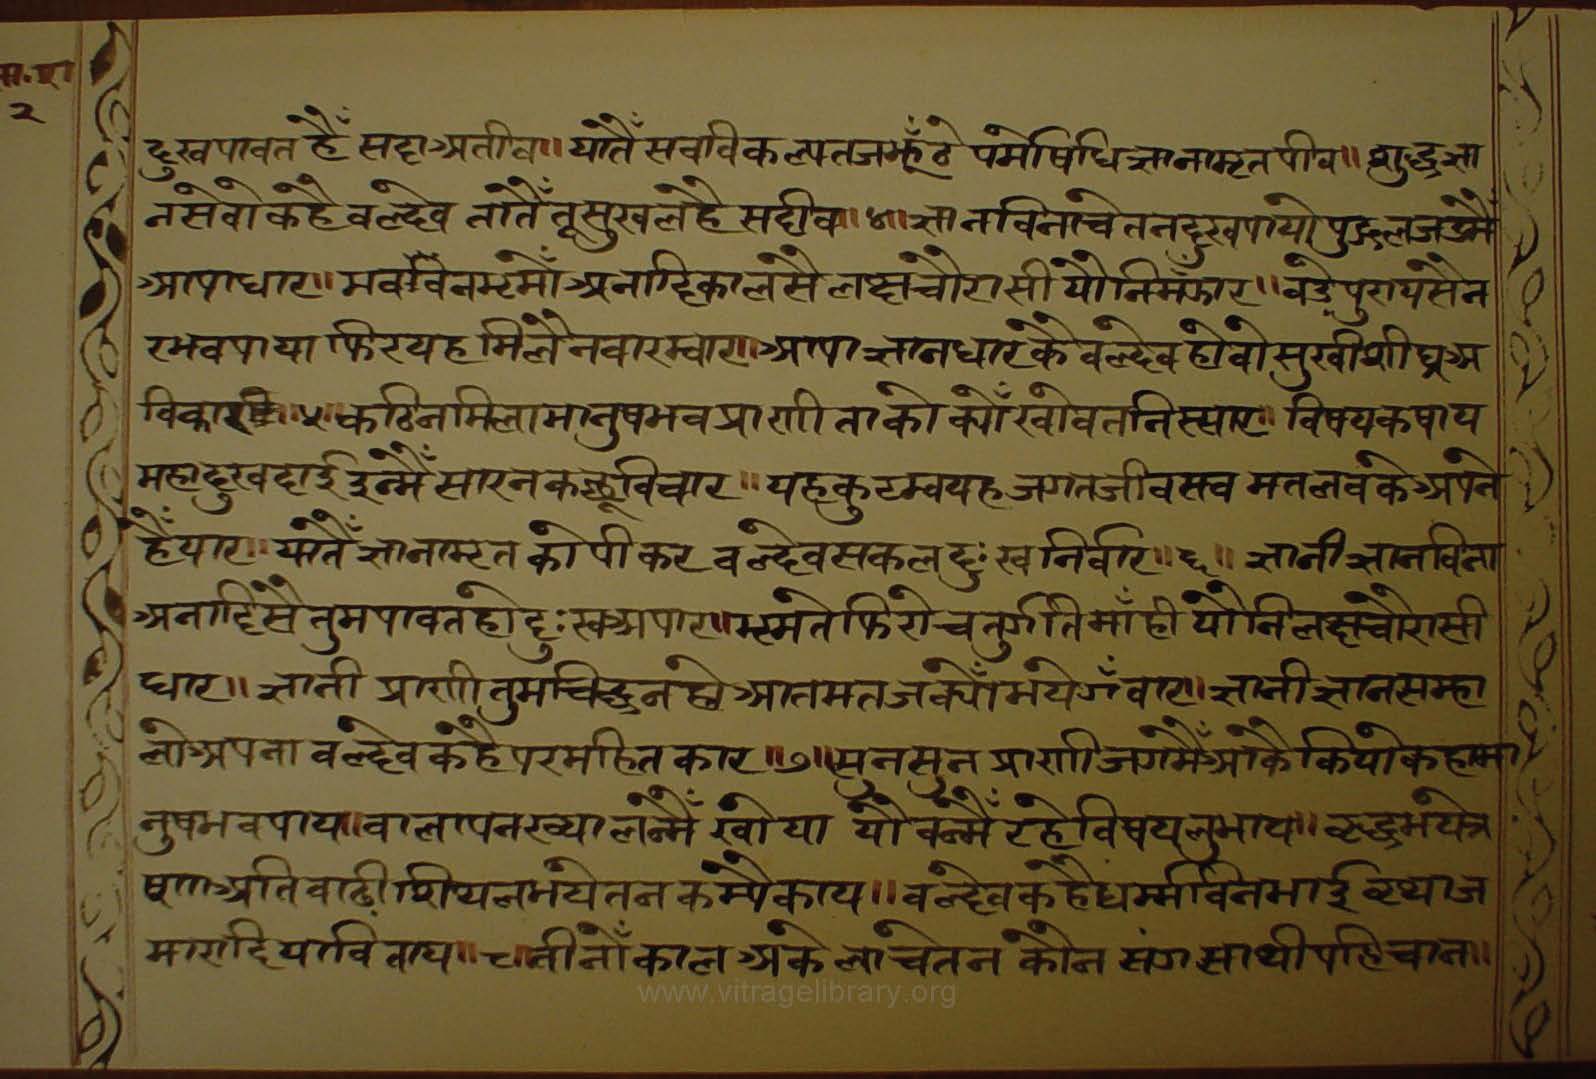 २
दुखपावत हैँ सदा अतीव॥ यातैँ सवविकल्पतज झूँठे पर्मोषधि ज्ञानामृत पीव॥ शुद्ध ज्ञा
नसेवो कहै वल्देव तातैँ तू सुखलहै सदीव॥४॥ ज्ञानविनाचेतनदुखपायो पुद्गलजडमैँ
आपाधार॥ भववनिभ्रमोँ अनादिकालसै लक्षचौरासी योनिमँझार॥ वडेपुरायसैन
रभवपाया फिरयह मिलैनवारम्वार॥ आपा ज्ञानधारकै वल्देव होवो सुखीशीघ्र अ
विकार॥५॥ कठिनमिलामानुषभव प्राणी ताको क्योँ खोवत निस्सार॥ विषयकषाय
महादुखदाई इन्मैँ सारनकछूविचार॥ यहकुटम्वयह जगतजीवसव मतलवके अपने
हैँ यार॥ यातैँ ज्ञानामृत को पीकर वल्देवसकलदुःखनिर्वार॥६॥ ज्ञानी ज्ञानविना
अनादिसै तुमपावतहो दुःख अपार॥ भ्रमते फिरो चतुर्गति माँही योनिलक्षचौरासी
धार॥ ज्ञानी प्राणी तुमचिद्घन हो आतमतज क्योँ भये गँवार॥ ज्ञानी ज्ञानसम्हा
लो अपना वल्देव कहै परमहितकार॥७॥ सुनसुन प्राणी जगमैँ आकै कियो कहा मा
नुषभवपाय॥ वालापनख्यालन्मैँ खोया यौवन्मैँ रहे विषयलुभाय॥ वृद्धभयेत्र
षणा अतिवाढी शिथलभयेतन कम्पैकाय॥ वल्देवकहै धर्म्मविनभाई वृथाज
मारादियाविताय॥८॥ तीनोँकाल अकेलाचेतन कौन संग साथी पहिचान॥
www.vitragelibrary.org